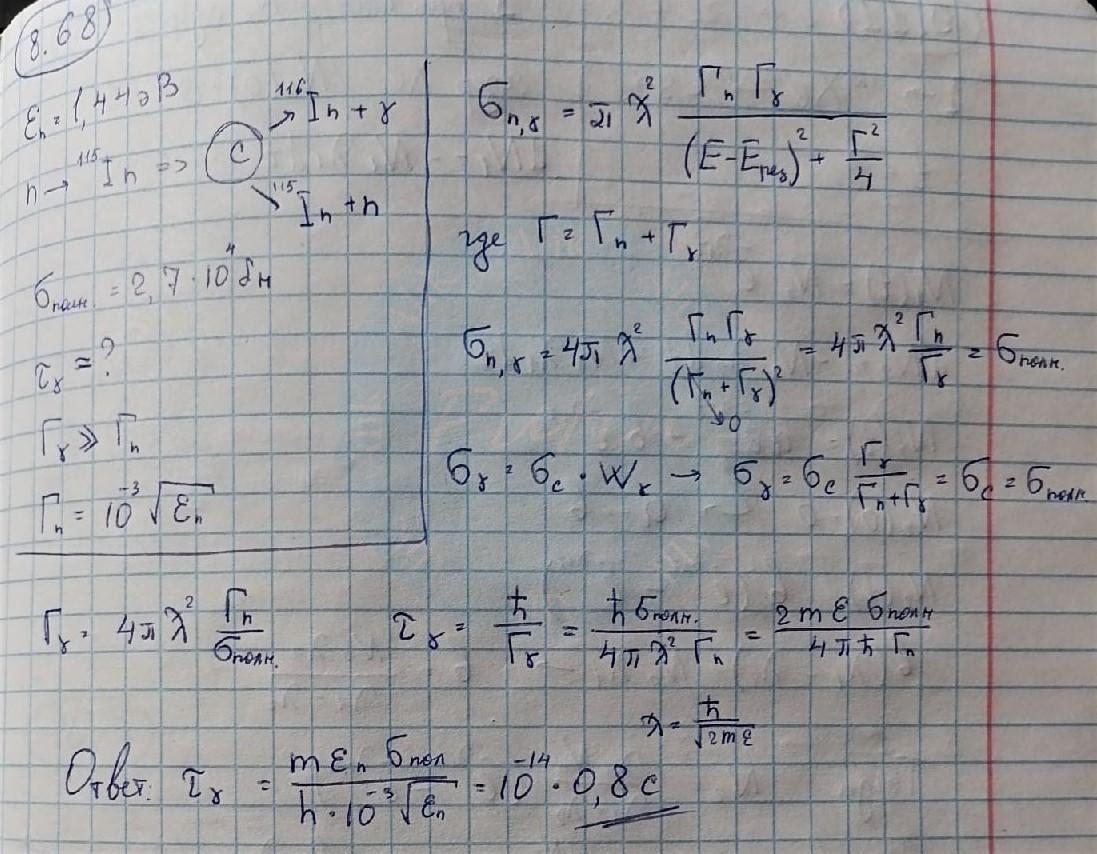 8.68
εₙ = 1,44 эВ
n → ¹¹⁵In => C
→ ¹¹⁶In + γ
→ ¹¹⁵In + n
σполн. = 2,7·10⁴ бн
τᵧ = ?
Γᵧ ≫ Γₙ
Γₙ = 10⁻³ √εₙ
σn,γ = π ƛ² ΓₙΓᵧ / ((E − Eрез)² + Γ²/4)
где Γ = Γₙ + Γᵧ
σn,γ = 4π ƛ² ΓₙΓᵧ / (Γₙ + Γᵧ)² = 4π ƛ² Γₙ/Γᵧ = σполн.
↘0
σᵧ = σc · Wᵧ → σᵧ = σc Γᵧ/(Γₙ+Γᵧ) = σc = σполн.
Γᵧ = 4π ƛ² Γₙ/σполн.
τᵧ = ħ/Γᵧ = ħ σполн. / (4π ƛ² Γₙ) = 2mε σполн / (4π ħ Γₙ)
ƛ = ħ/√2mε
Ответ: τᵧ = m εₙ σпол / (h·10⁻³ √εₙ) = 10⁻¹⁴ · 0,8 с